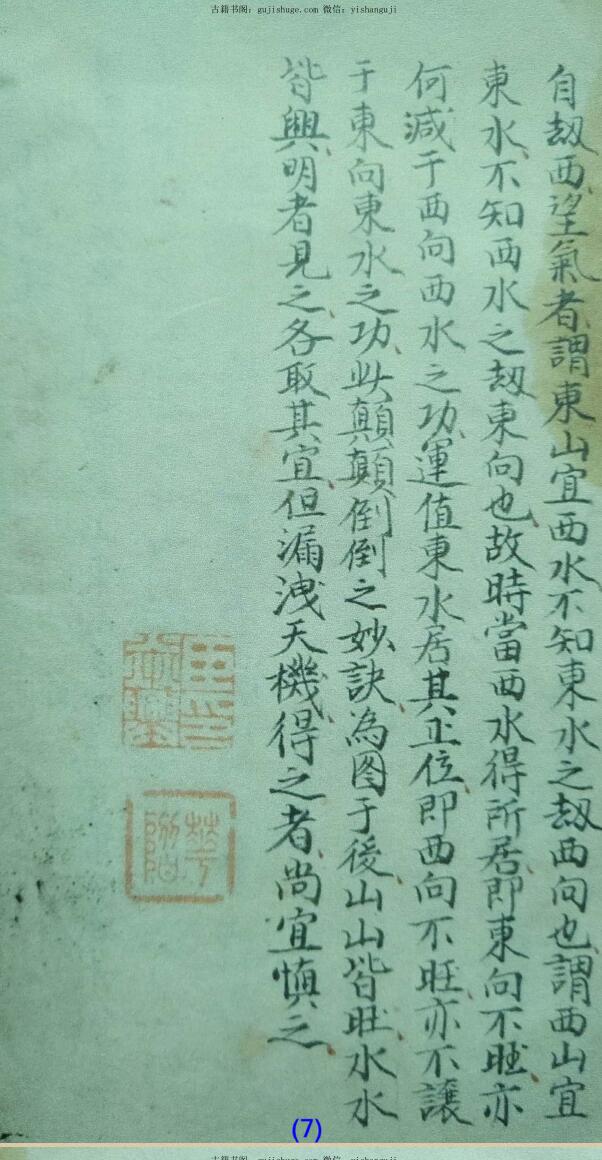 古籍书阁：gujishuge.com 微信：yishanguji
自刼西望氣者謂東山宜西水不知東水之刼西向也謂西山宜
東水不知西水之刼東向也故時當西水得所居即東向不旺亦
何減于西向西水之功運值東水居其正位即西向不旺亦不讓
于東向東水之功此顛顛倒倒之妙訣為图于後山山皆旺水水
皆興明者見之各取其宜但漏洩天機得之者尚宜慎之
(7)
古籍书阁：gujishuge.com 微信：yishanguji